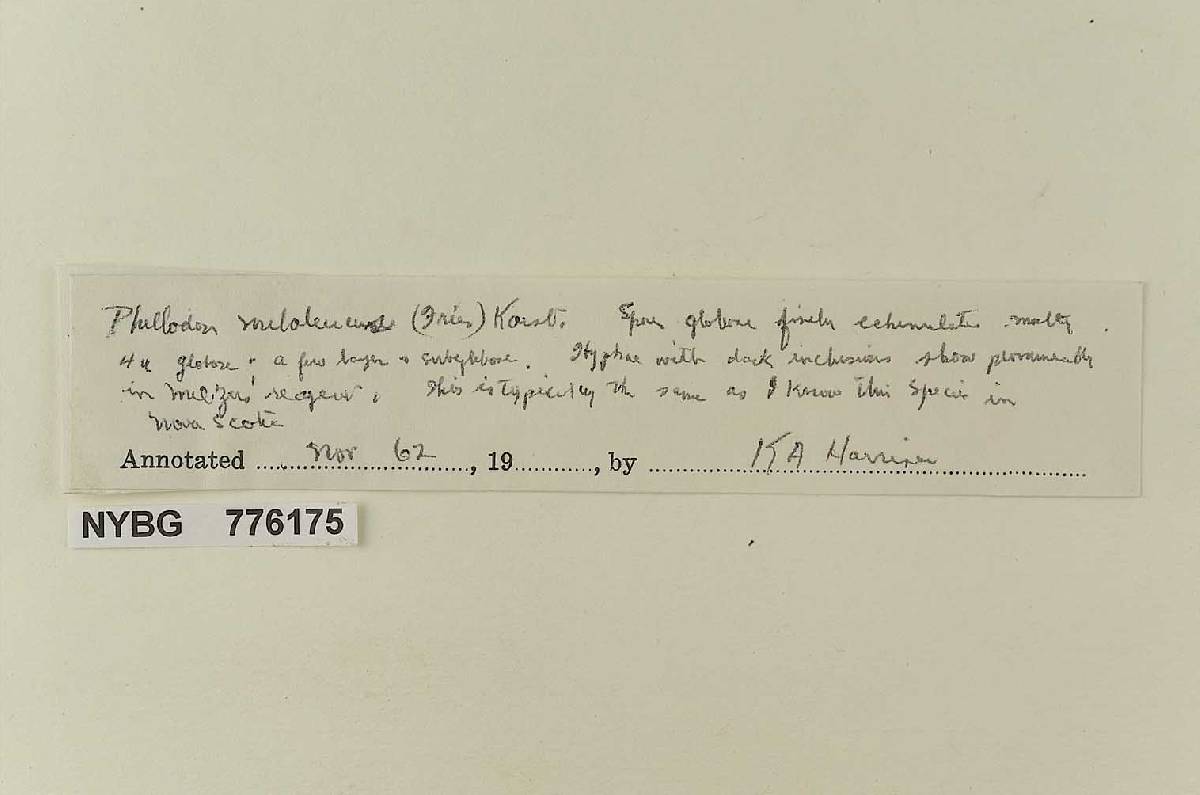 Phellodon melaleucus (Fries) Karst. Spores globose finely echinulate mostly
4 u globose & a few larger & subglobose. Hyphae with dark inclusions show prominently
in Melzers' reagent. This is typically the same as I know this species in
Nova Scotia
Annotated Nov 62, 19, by K A Harrison
NYBG 776175